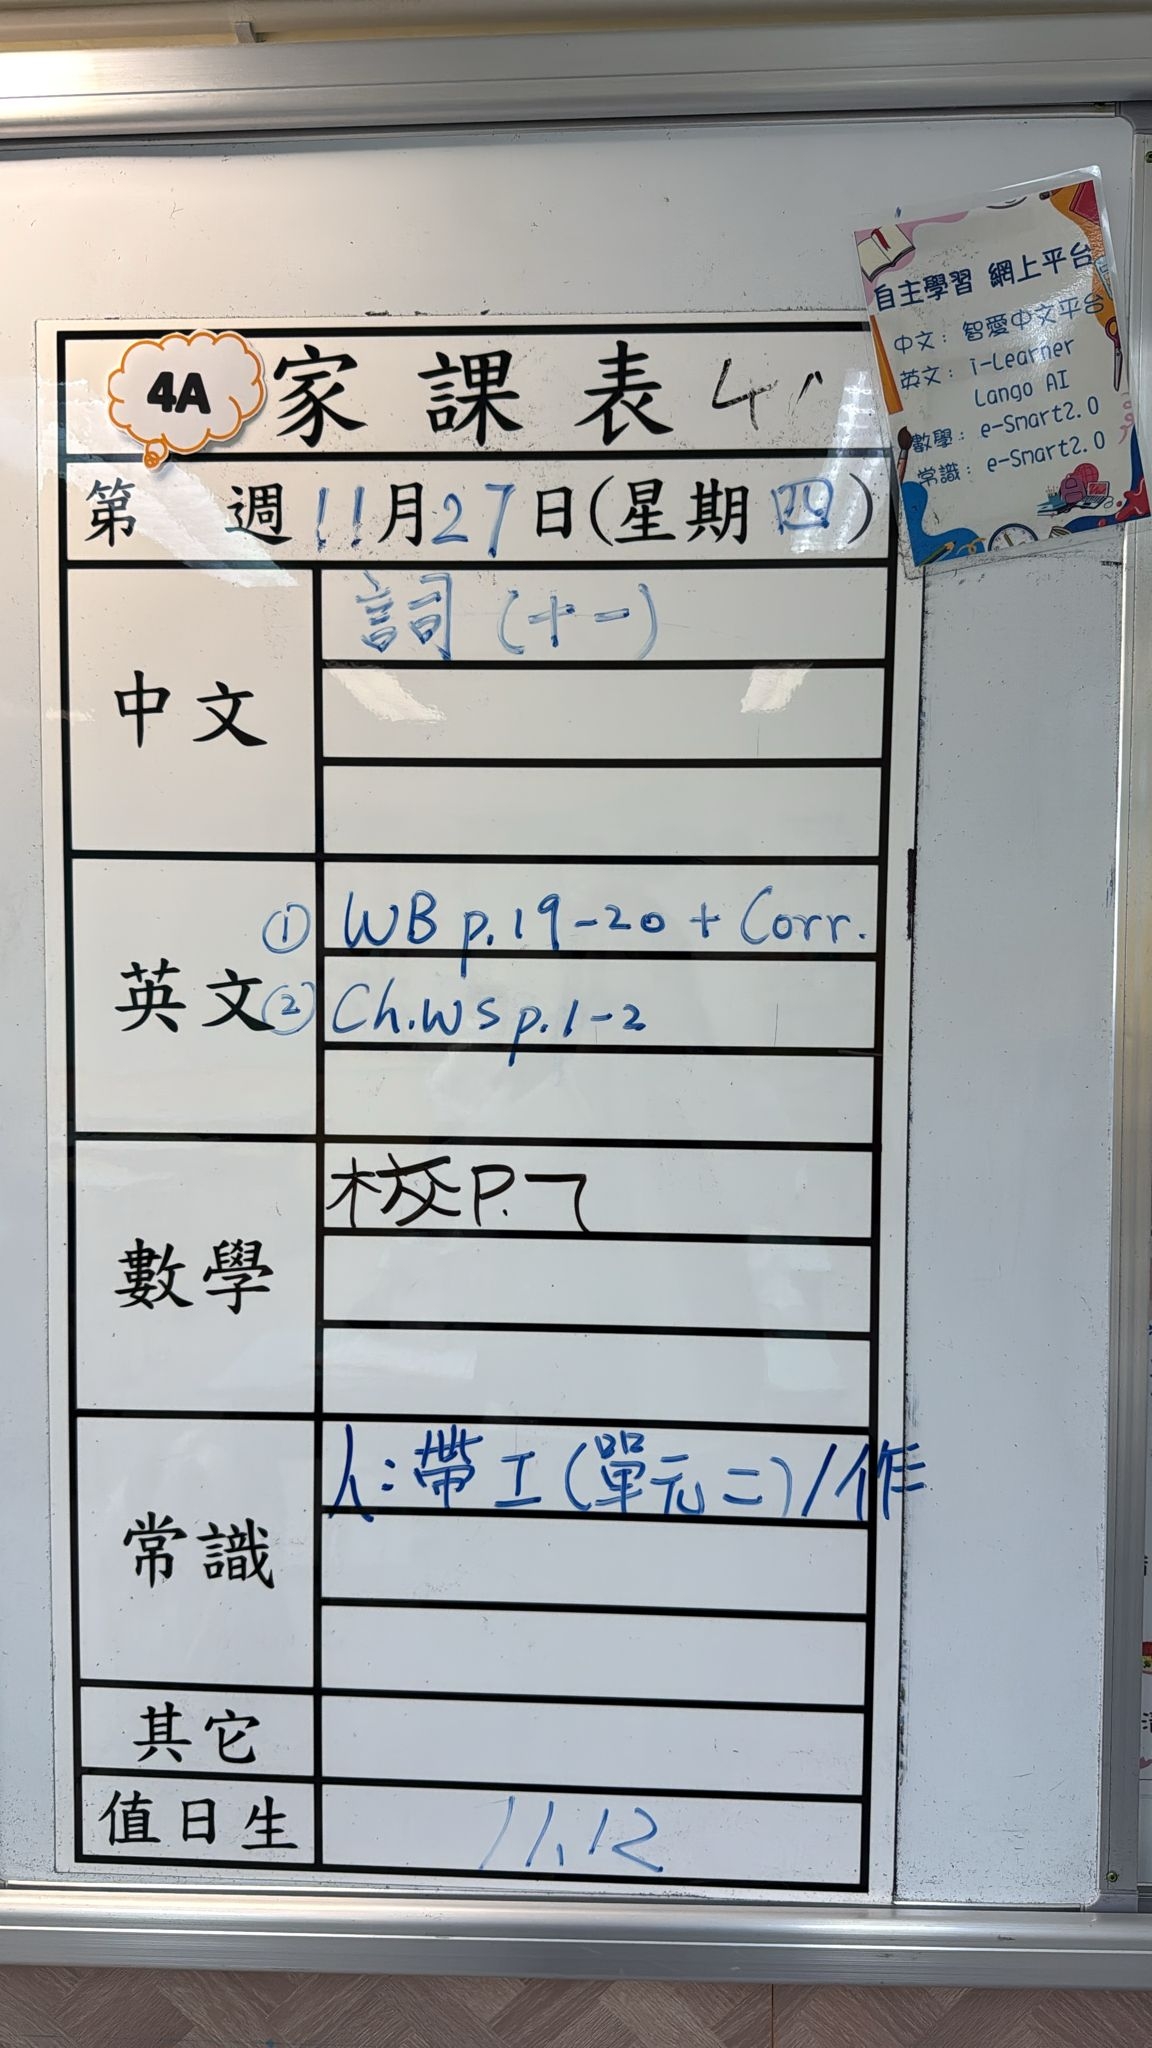 4A 家課表
第 週 11月27日(星期四)
中文
詞(十一)
英文
① WB p.19-20 + Corr.
② Ch.WS p.1-2
數學
校P.7
常識
人:帶工(單元二)/作
其它
值日生
11,12
自主學習 網上平台
中文：智愛中文平台
英文：i-Learner
Lango AI
數學：e-Smart2.0
常識：e-Smart2.0